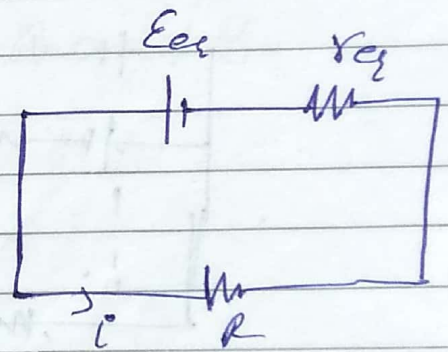 Eeq req
i R